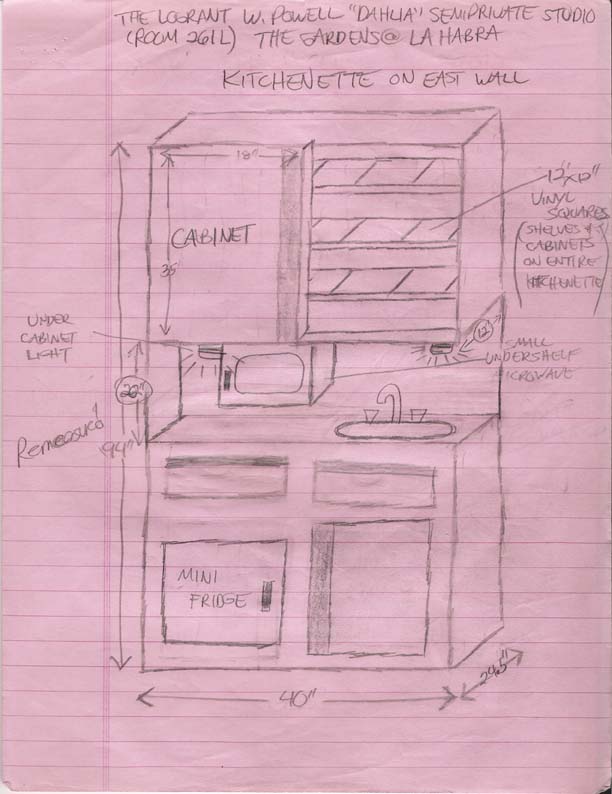 THE LOGRANT W. POWELL "DAHLIA" SEMIPRIVATE STUDIO
(ROOM 261L) THE GARDENS@ LA HABRA
KITCHENETTE ON EAST WALL
18"
12"x12"
VINYL
SQUARES
(SHELVES &
CABINETS
ON ENTIRE
KITCHENETTE)
CABINET
35"
UNDER
CABINET
LIGHT
12"
SMALL
UNDERSHELF
MICROWAVE
22"
94"
MINI
FRIDGE
24.5"
40"